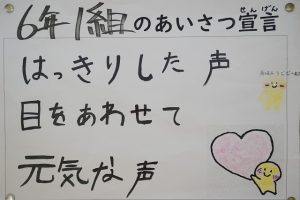 6年1組のあいさつ宣言
せんげん
はっきりした 声
目をあわせて
元気な声